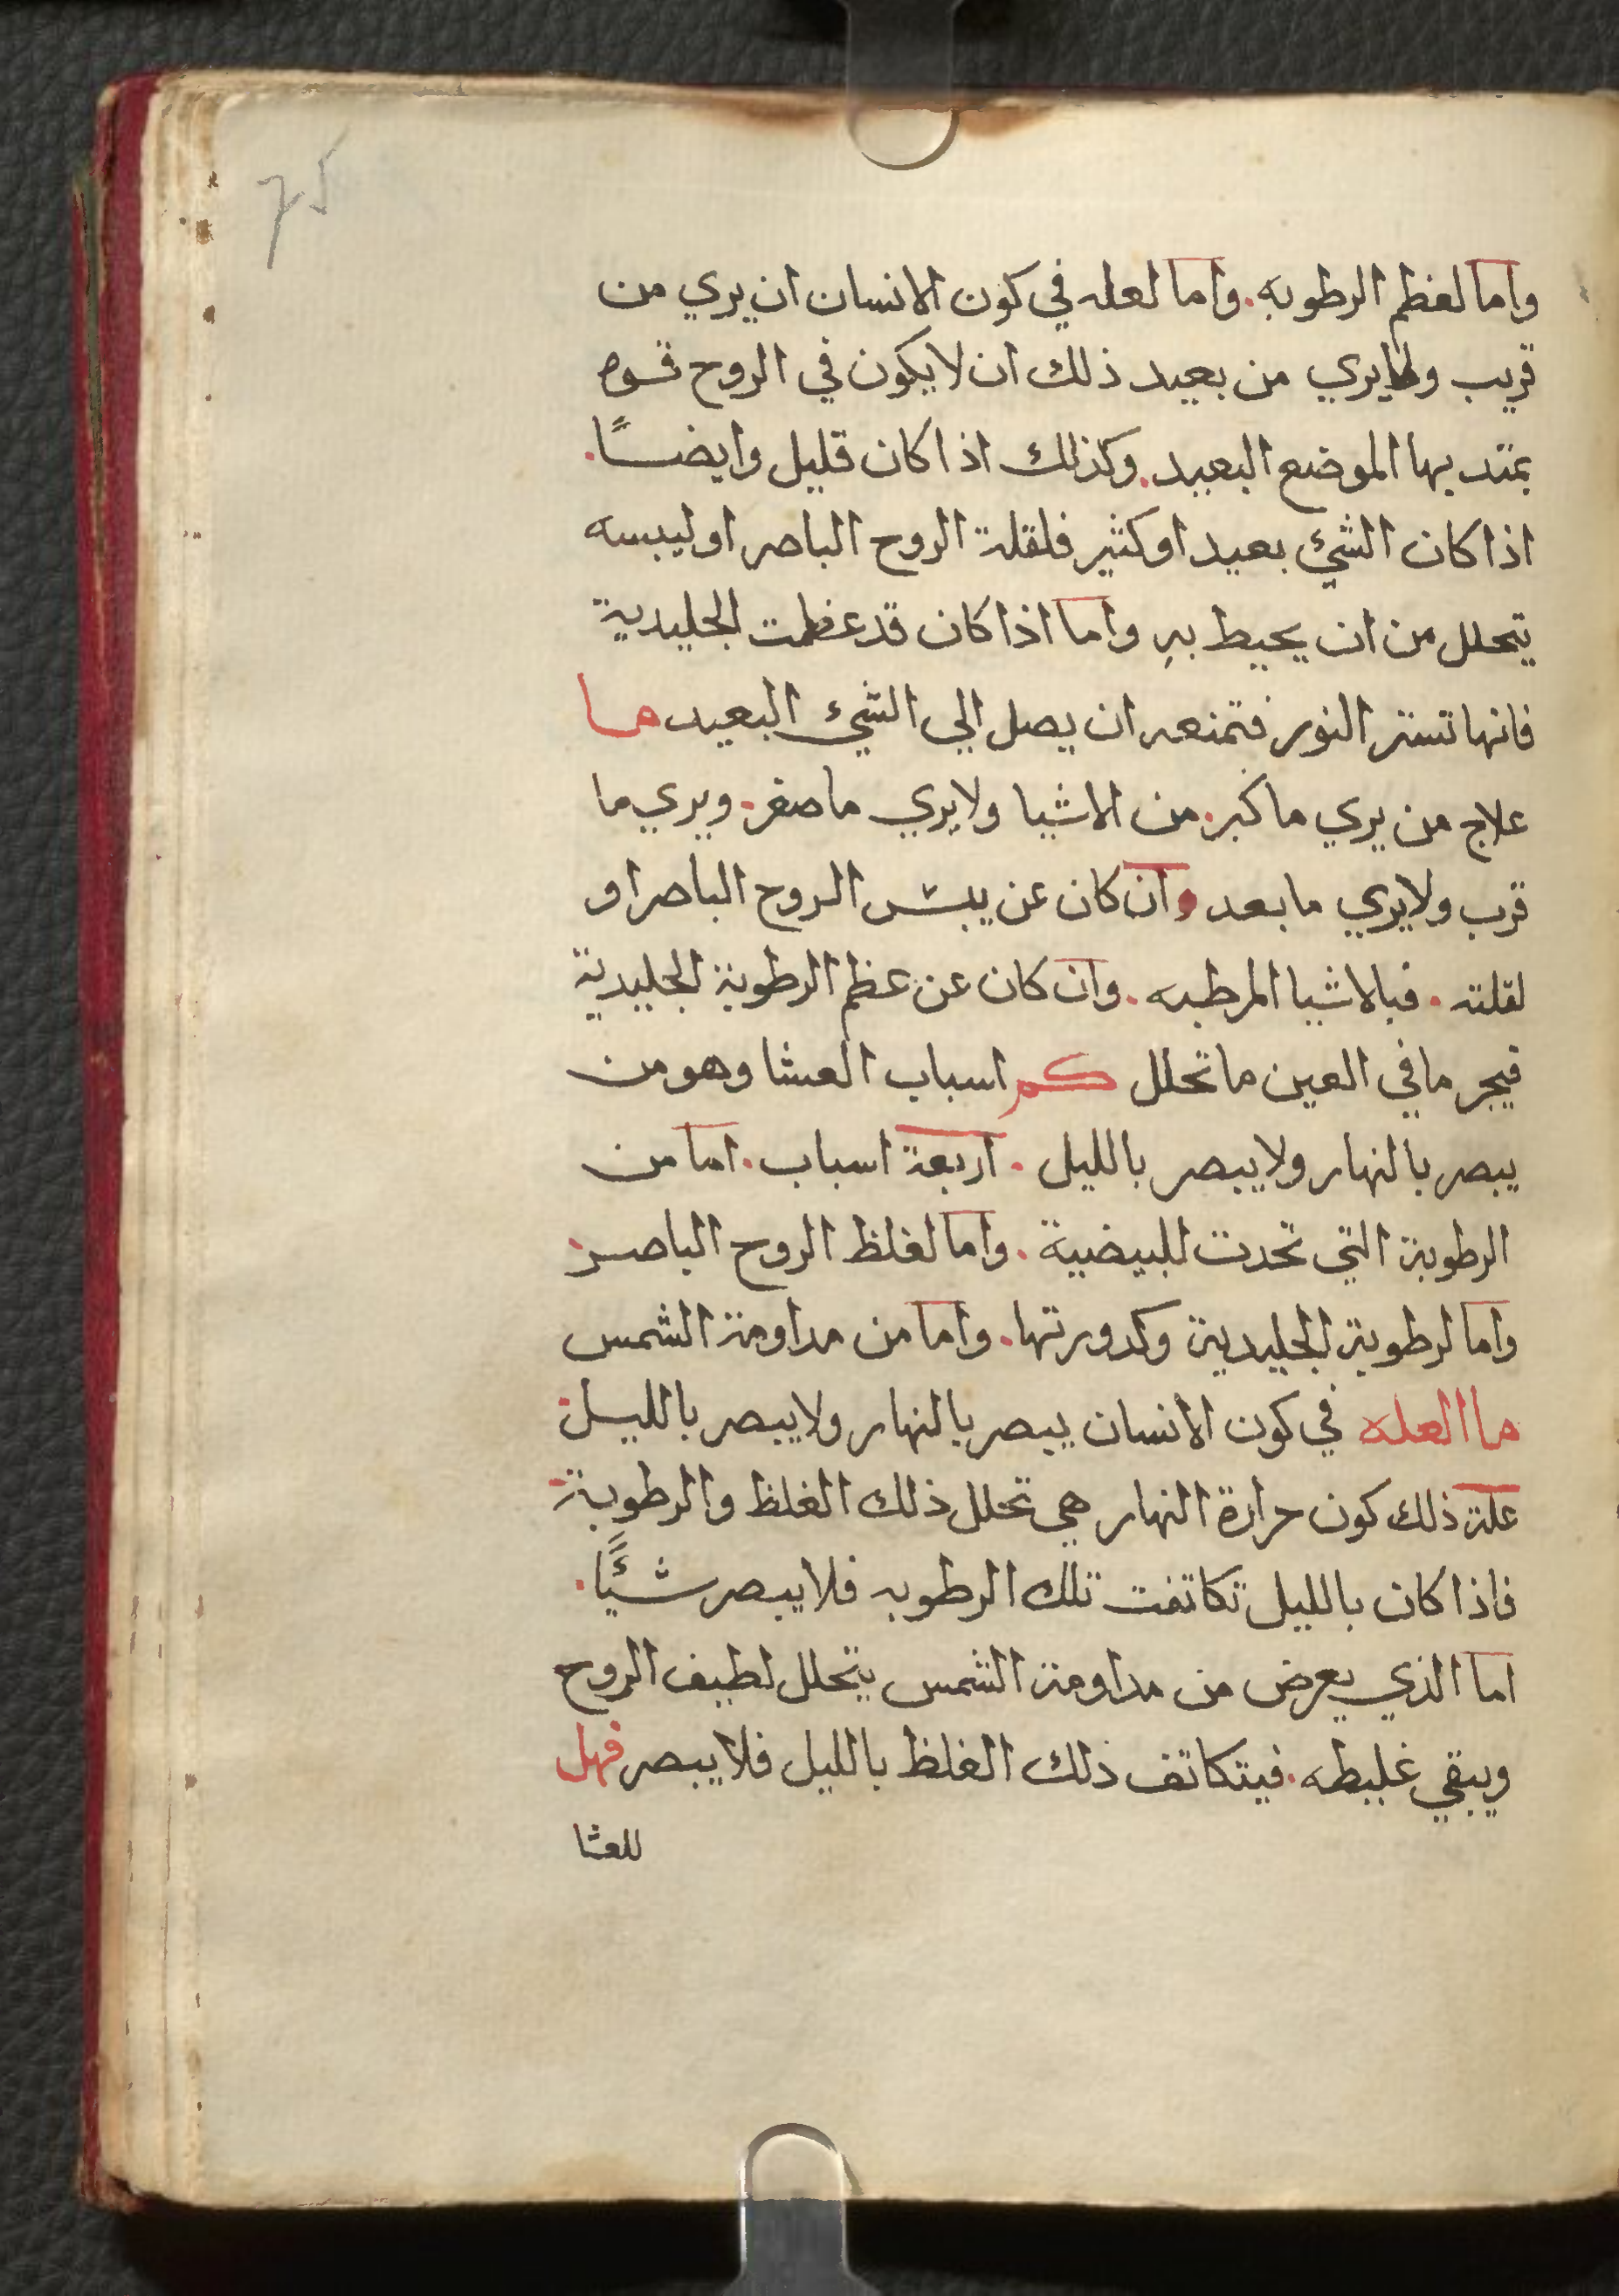 واما لغظم الرطوبه. واما لعله في كون الانسان ان يري من
قريب ولا يري من بعيد ذلك ان لا يكون في الروح قوه
يمتد بها الموضع البعيد. وكذلك اذا كان قليل وايضاً.
اذا كان الشيء بعيد او كثير فلقلة الروح الباصر او ليبسه
يتحلل من ان يحيط به واما اذا كان قد عظمت الجليدية
فانها تستر النور فتمنعه ان يصل الي الشيء البعيد ما
علاج من يري ما كبر. من الاشيا ولا يري ما صغر. ويري ما
قرب ولا يري ما بعد وان كان عن يبس الروح الباصر او
لقلته. فبالاشيا المرطبه. وان كان عن عظم الرطوبة الجليدية
فيجر ما في العين ما تحلل كم اسباب العشا وهو من
يبصر بالنهار ولا يبصر بالليل. اربعة اسباب. اما من
الرطوبة التي تحدت للبيضية. واما لغلظ الروح الباصر.
واما لرطوبة الجليدية وكدورتها. واما من مداومة الشمس
ما العله في كون الانسان يبصر بالنهار ولا يبصر بالليل.
علة ذلك كون حرارة النهار هي تحلل ذلك الغلظ والرطوبة.
فاذا كان بالليل تكاتفت تلك الرطوبه فلا يبصر شئًا.
اما الذي يعرض من مداومة الشمس يتحلل لطيف الروح
ويبقي غليظه. فيتكاتف ذلك الغلظ بالليل فلا يبصر فهل
للعشا